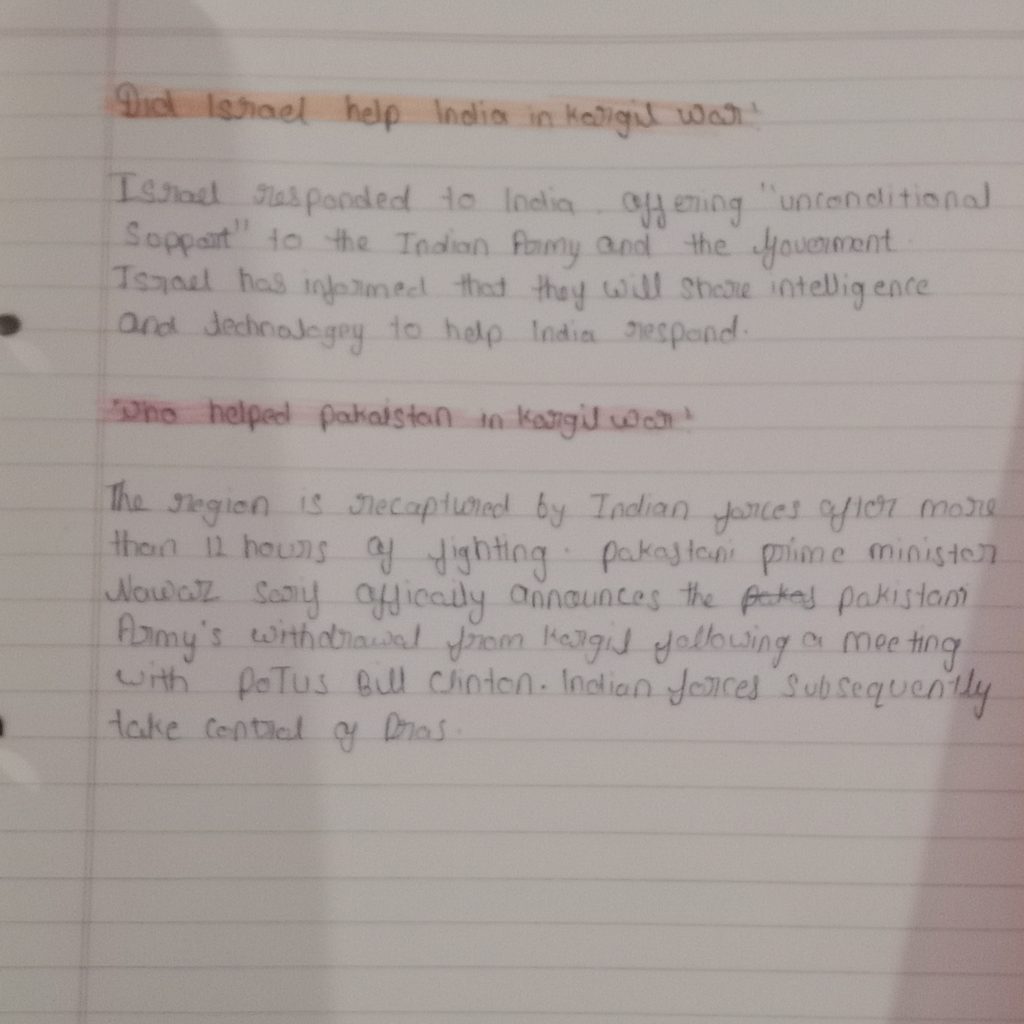 Did Israel help India in Kargil war'
Israel responded to India offering "unconditional
Soppart" to the Indian Army and the Gouverment.
Israel has informed that they will share intelligence
and technologey to help India respond.
Who helped pakaistan in Kargil war'
The region is recaptured by Indian forces after more
than 12 hours of fighting. pakastani prime minister
Nawaz Sarif offically announces the pakistani
Army's withdrawal from Kargil following a meeting
with POTUS Bill Clinton. Indian forces subsequently
take control of Dras.